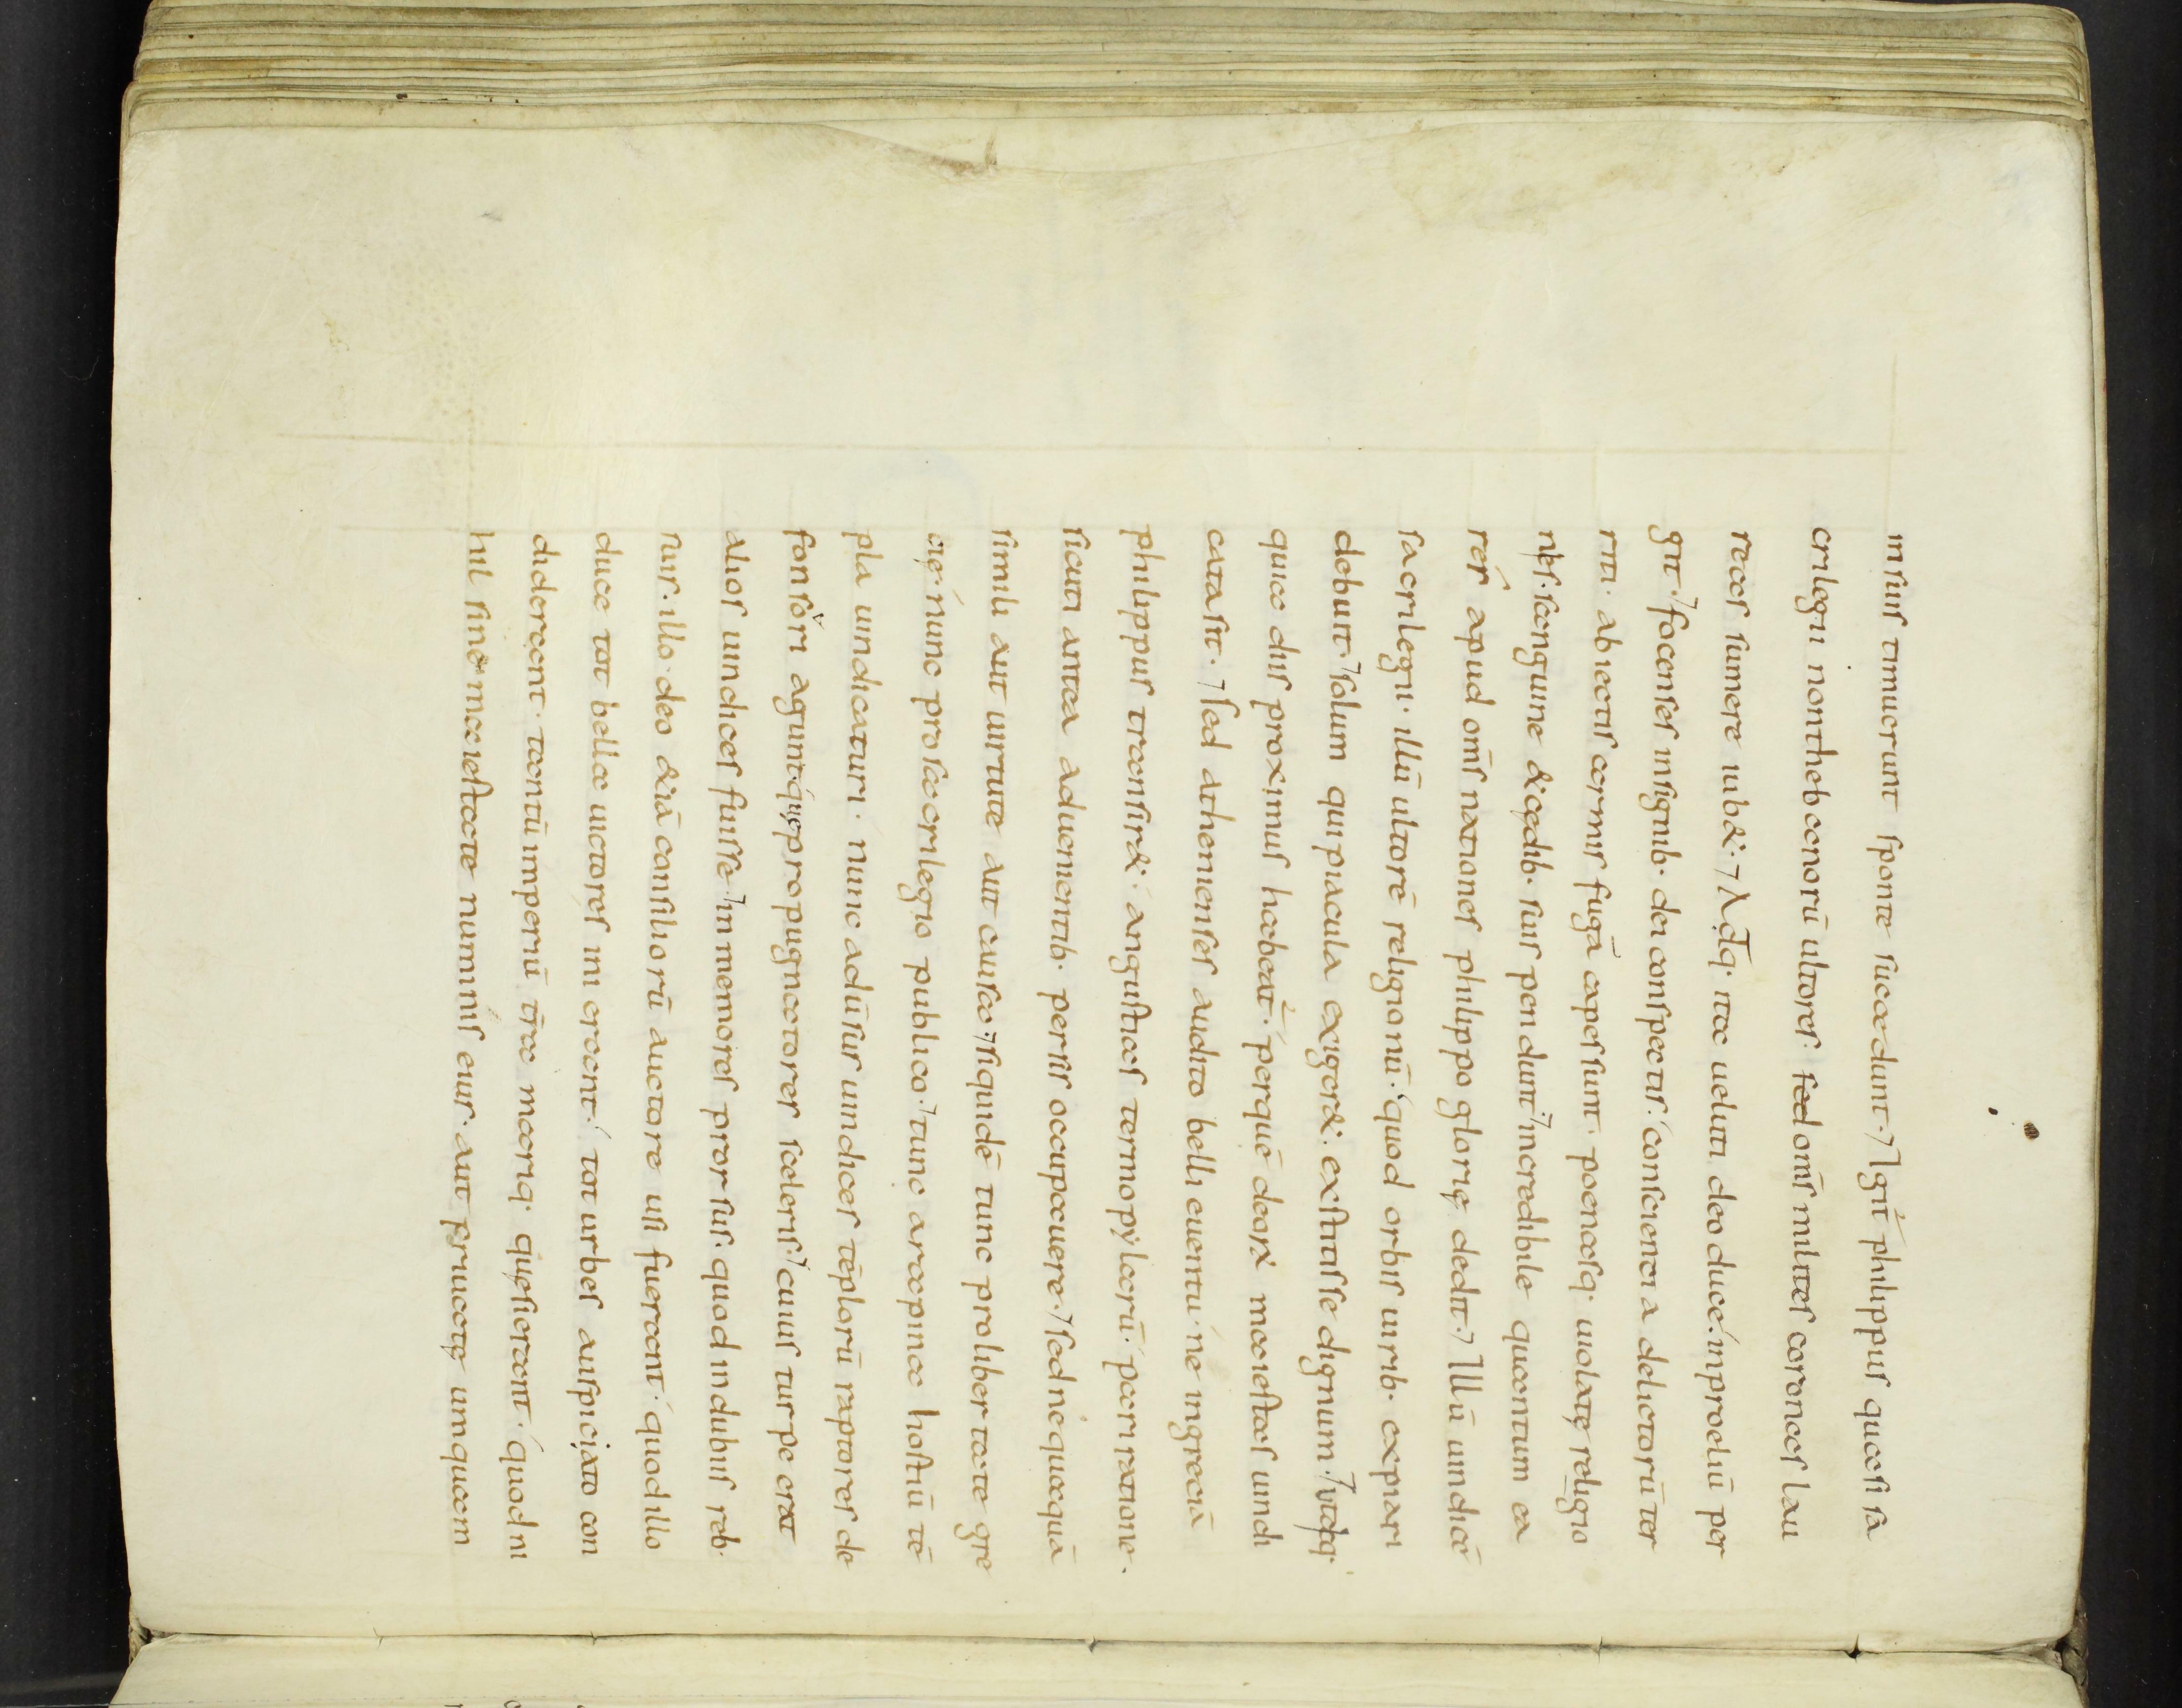 insuis timuerunt sponte succedunt. Igit philippus quasi sa
crilegii nonthebanorū ultores. sed om̄s milites coronas lau
reas sumere iub&. Adq· ita ueluti deo duce. inproeliū per
git. focenses insignib· dei conspectis. conscientia delictorū ter
riti. abiectis armis fugā capessunt. poenasq· uiolatę religio
nis. sanguine & cędib· suis pendunt. incredibile quantum ea
res apud om̄s nationes philippo glorię dedit. Illū uindicē
sacrilegii. illū ultorē religionū. quod orbis uirib· expiari
debuit. solum qui piacula exiger&. exstitisse dignum. itaq·
quae diis proximus habeat. per quē deorū maiestas uindi
cata sit. sed athenienses audito belli euentu. ne ingreciā
philippus transir&. angustias termopylarū. pari ratione.
sicuti antea aduenientib· persis occupauere. sed nequaquā
simili aut uirtute aut causa. siquidē tunc pro libertate gre
cię. nunc pro sacrilegio publico. tunc a rapina hostiū tē
pla uindicaturi. nunc adūsus uindices tēplorū raptores de
fensori agunt quę propugnatores sceleris. cuius turpe erat
alios uindices fuisse. inmemores prorsus. quod indubiis reb·
suis. illo deo &iā consiliorū auctore usi fuerant. quod illo
duce tot bella uictores inierant. tot urbes auspiciato con
diderant. tantū imperiū t̄ra mariq· quęsierant. quod ni
hil sine maiestate numinis eius. aut priuatę umquam